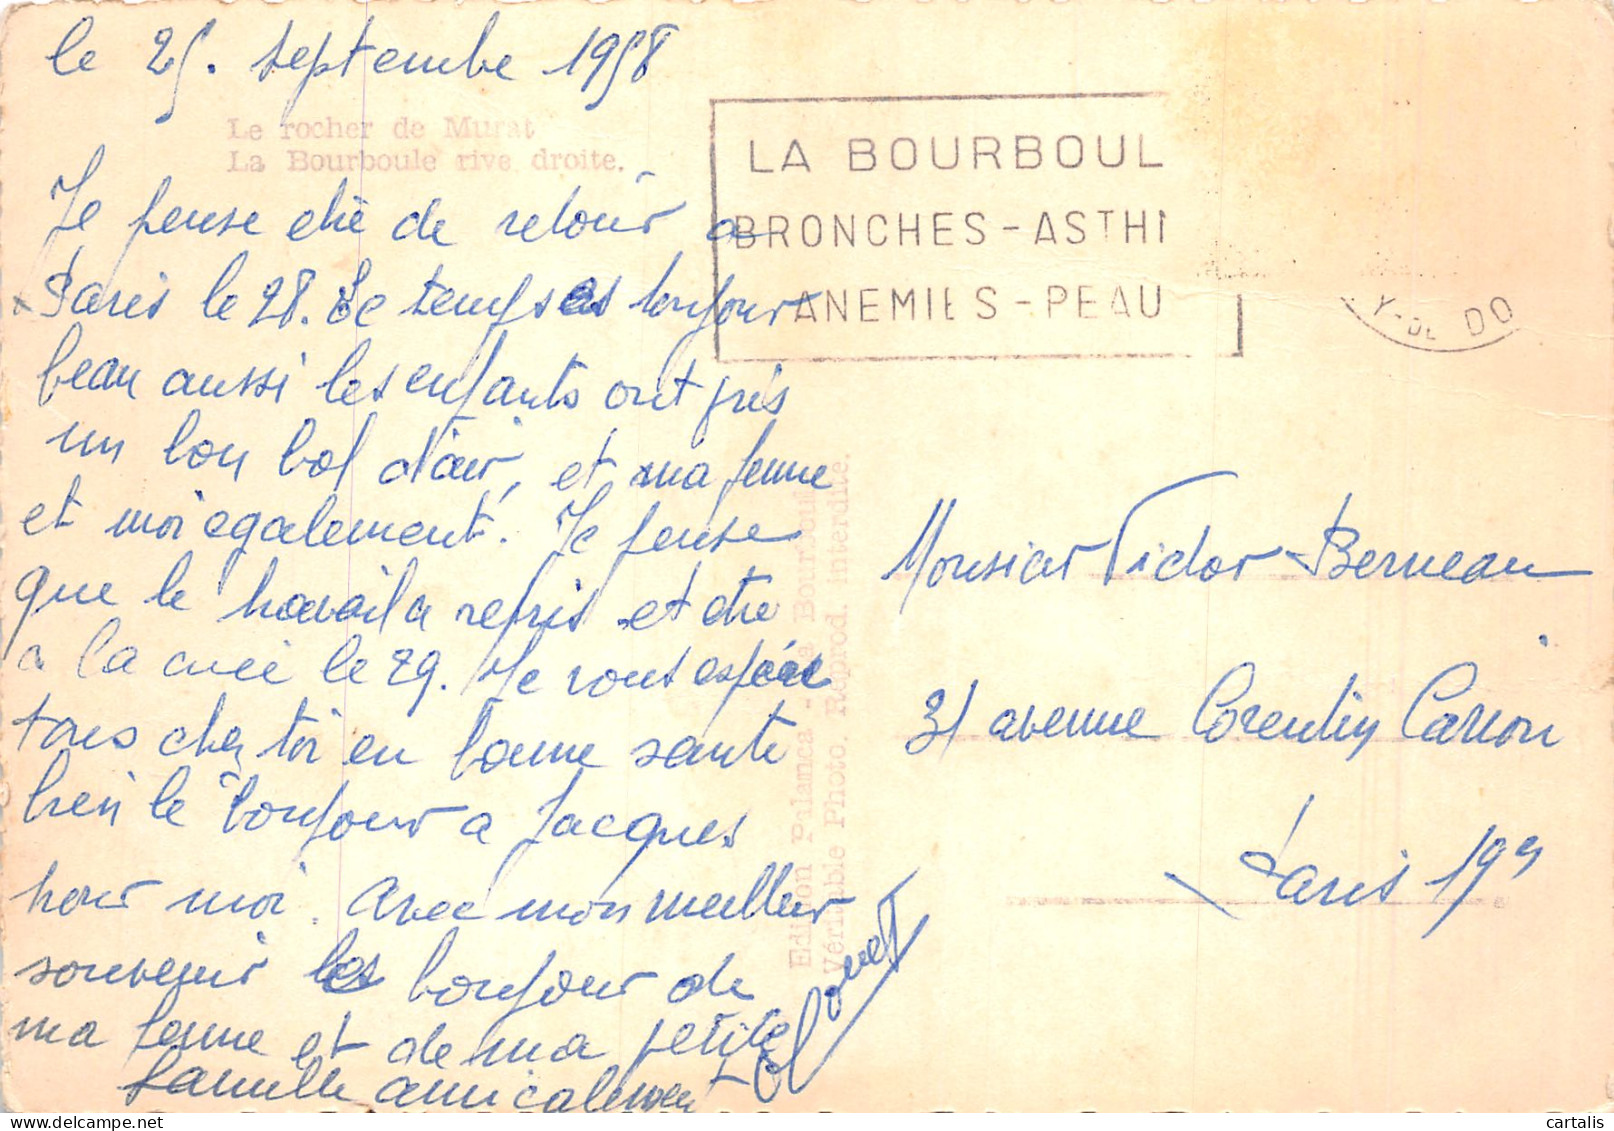 le 25. septembe 1958
Le rocher de Murat
La Bourboule rive droite.
Je pense etre de retour a
Paris le 28. Le temps est toujour
beau aussi les enfants ont pris
un bon bol d'air, et ma femme
et moi egalement. Je pense
que le travail a repris et etre
a la 29. Je vous espère
tous chez toi en bonne sante
bien le bonjour a Jacques
pour moi. Avec mon meilleur
souvenir les bonjour de
ma femme et de ma petite
famille amicalement
LA BOURBOUL
BRONCHES-ASTH
ANEMIES-PEAU
Y-DE DO
Edition Pilamca - La Bourboule
Véritable Photo. Reprod. interdite.
Monsieur Victor Berneau
31 avenue Corentin Cariou
Paris 19e
cartalis